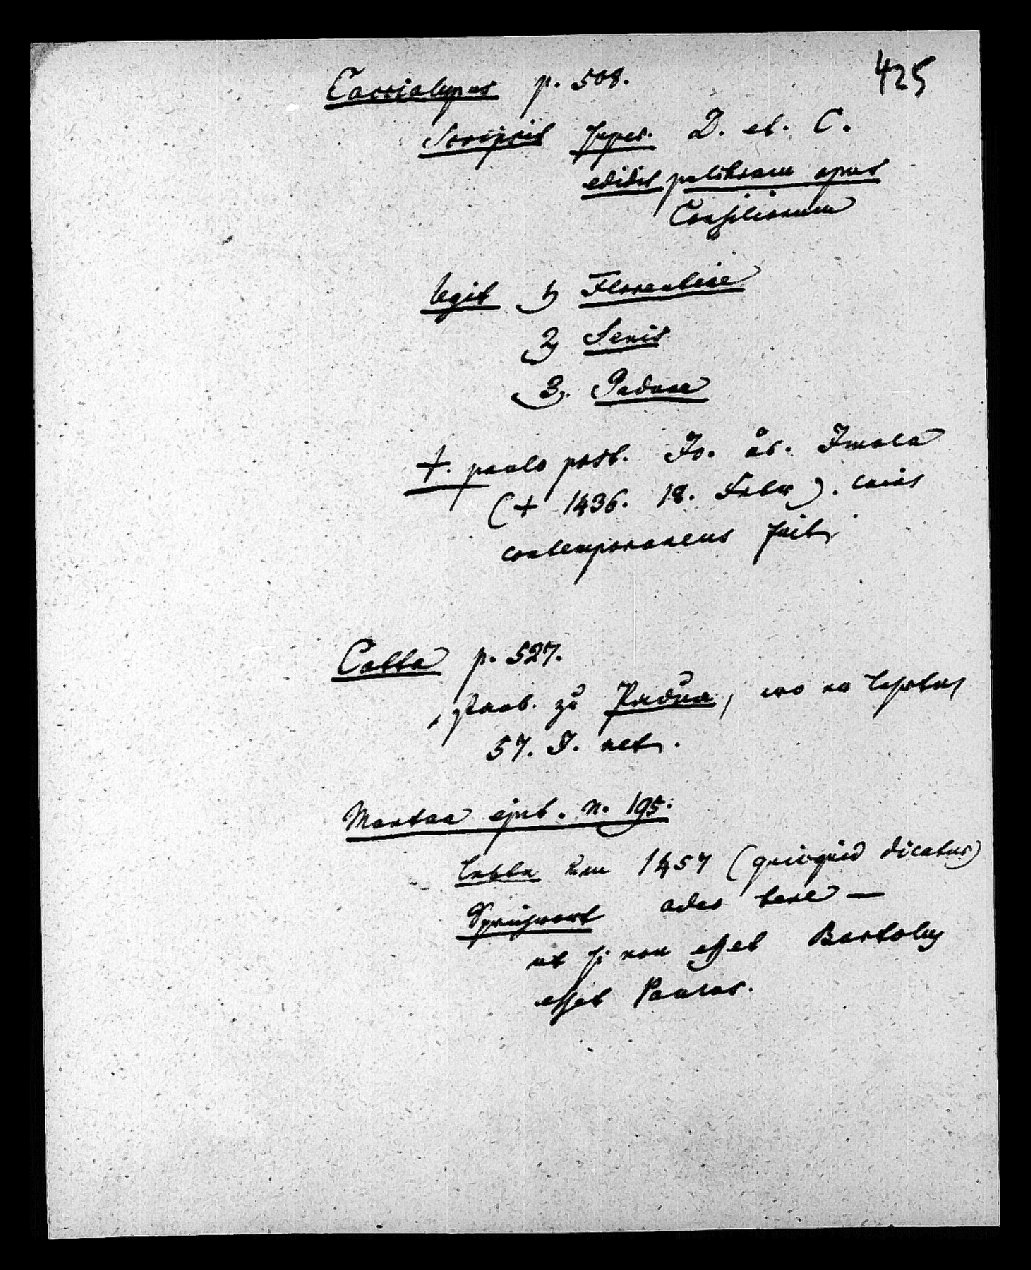 425
Caccialupus p. 508.
Scripsit super. D. et. C.
edidit pulchrum opus
Consiliorum
legit 1) Florentiae
2) Senis
3. Paduae
†. paulo post. Jo. ab. Imola
(† 1436. 18. Febr). cuius
contemporaneus fuit.
Cotta p. 527.
starb. zu Padua, wo er
57. J.
Mantua epit. n. 195.
lebte um 1457 (quicquid dicatur)
Sprichwort oder
ut si non esset Bartolus
esset Paulus.